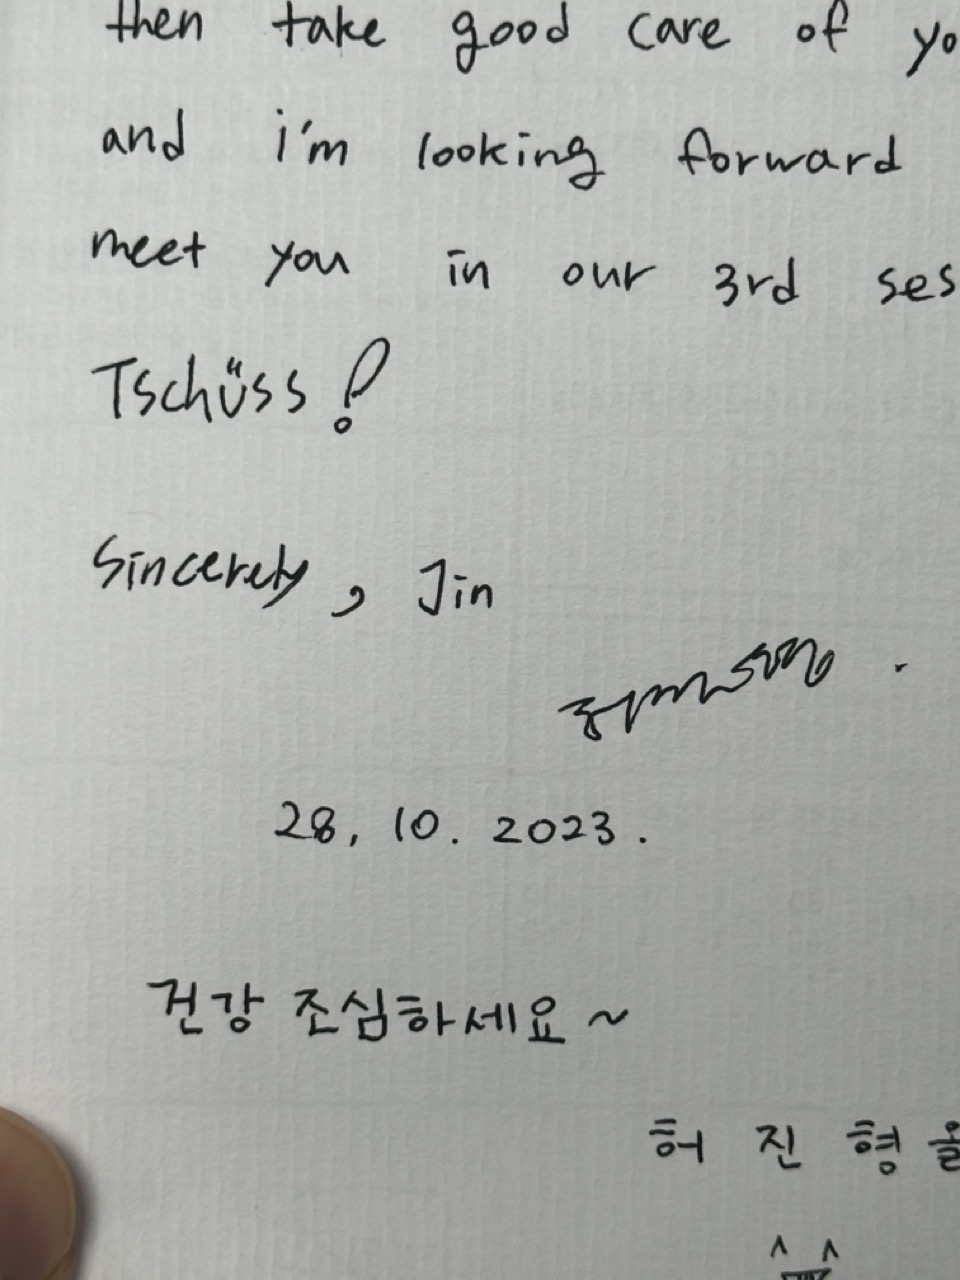 then take good care of yo
and i'm looking forward
meet you in our 3rd ses
Tschüss!
Sincerely, Jin
28, 10. 2023.
건강 조심하세요~
허 진 형 올
^ ^